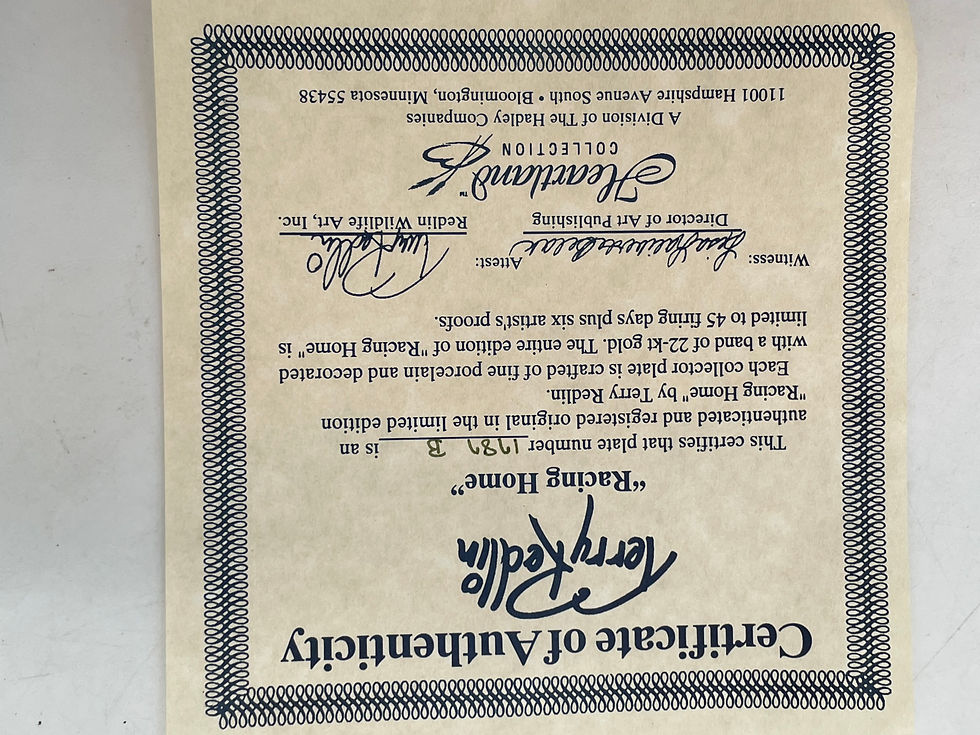 Certificate of Authenticity
Terry Redlin
“Racing Home”
This certifies that plate number 1789 B is an
authenticated and registered original in the limited edition
"Racing Home" by Terry Redlin.
Each collector plate is crafted of fine porcelain and decorated
with a band of 22-kt gold. The entire edition of "Racing Home" is
limited to 45 firing days plus six artist's proofs.
Witness: Attest: Terry Redlin
Director of Art Publishing Redlin Wildlife Art, Inc.
Heartland™
COLLECTION
A Division of The Hadley Companies
11001 Hampshire Avenue South • Bloomington, Minnesota 55438